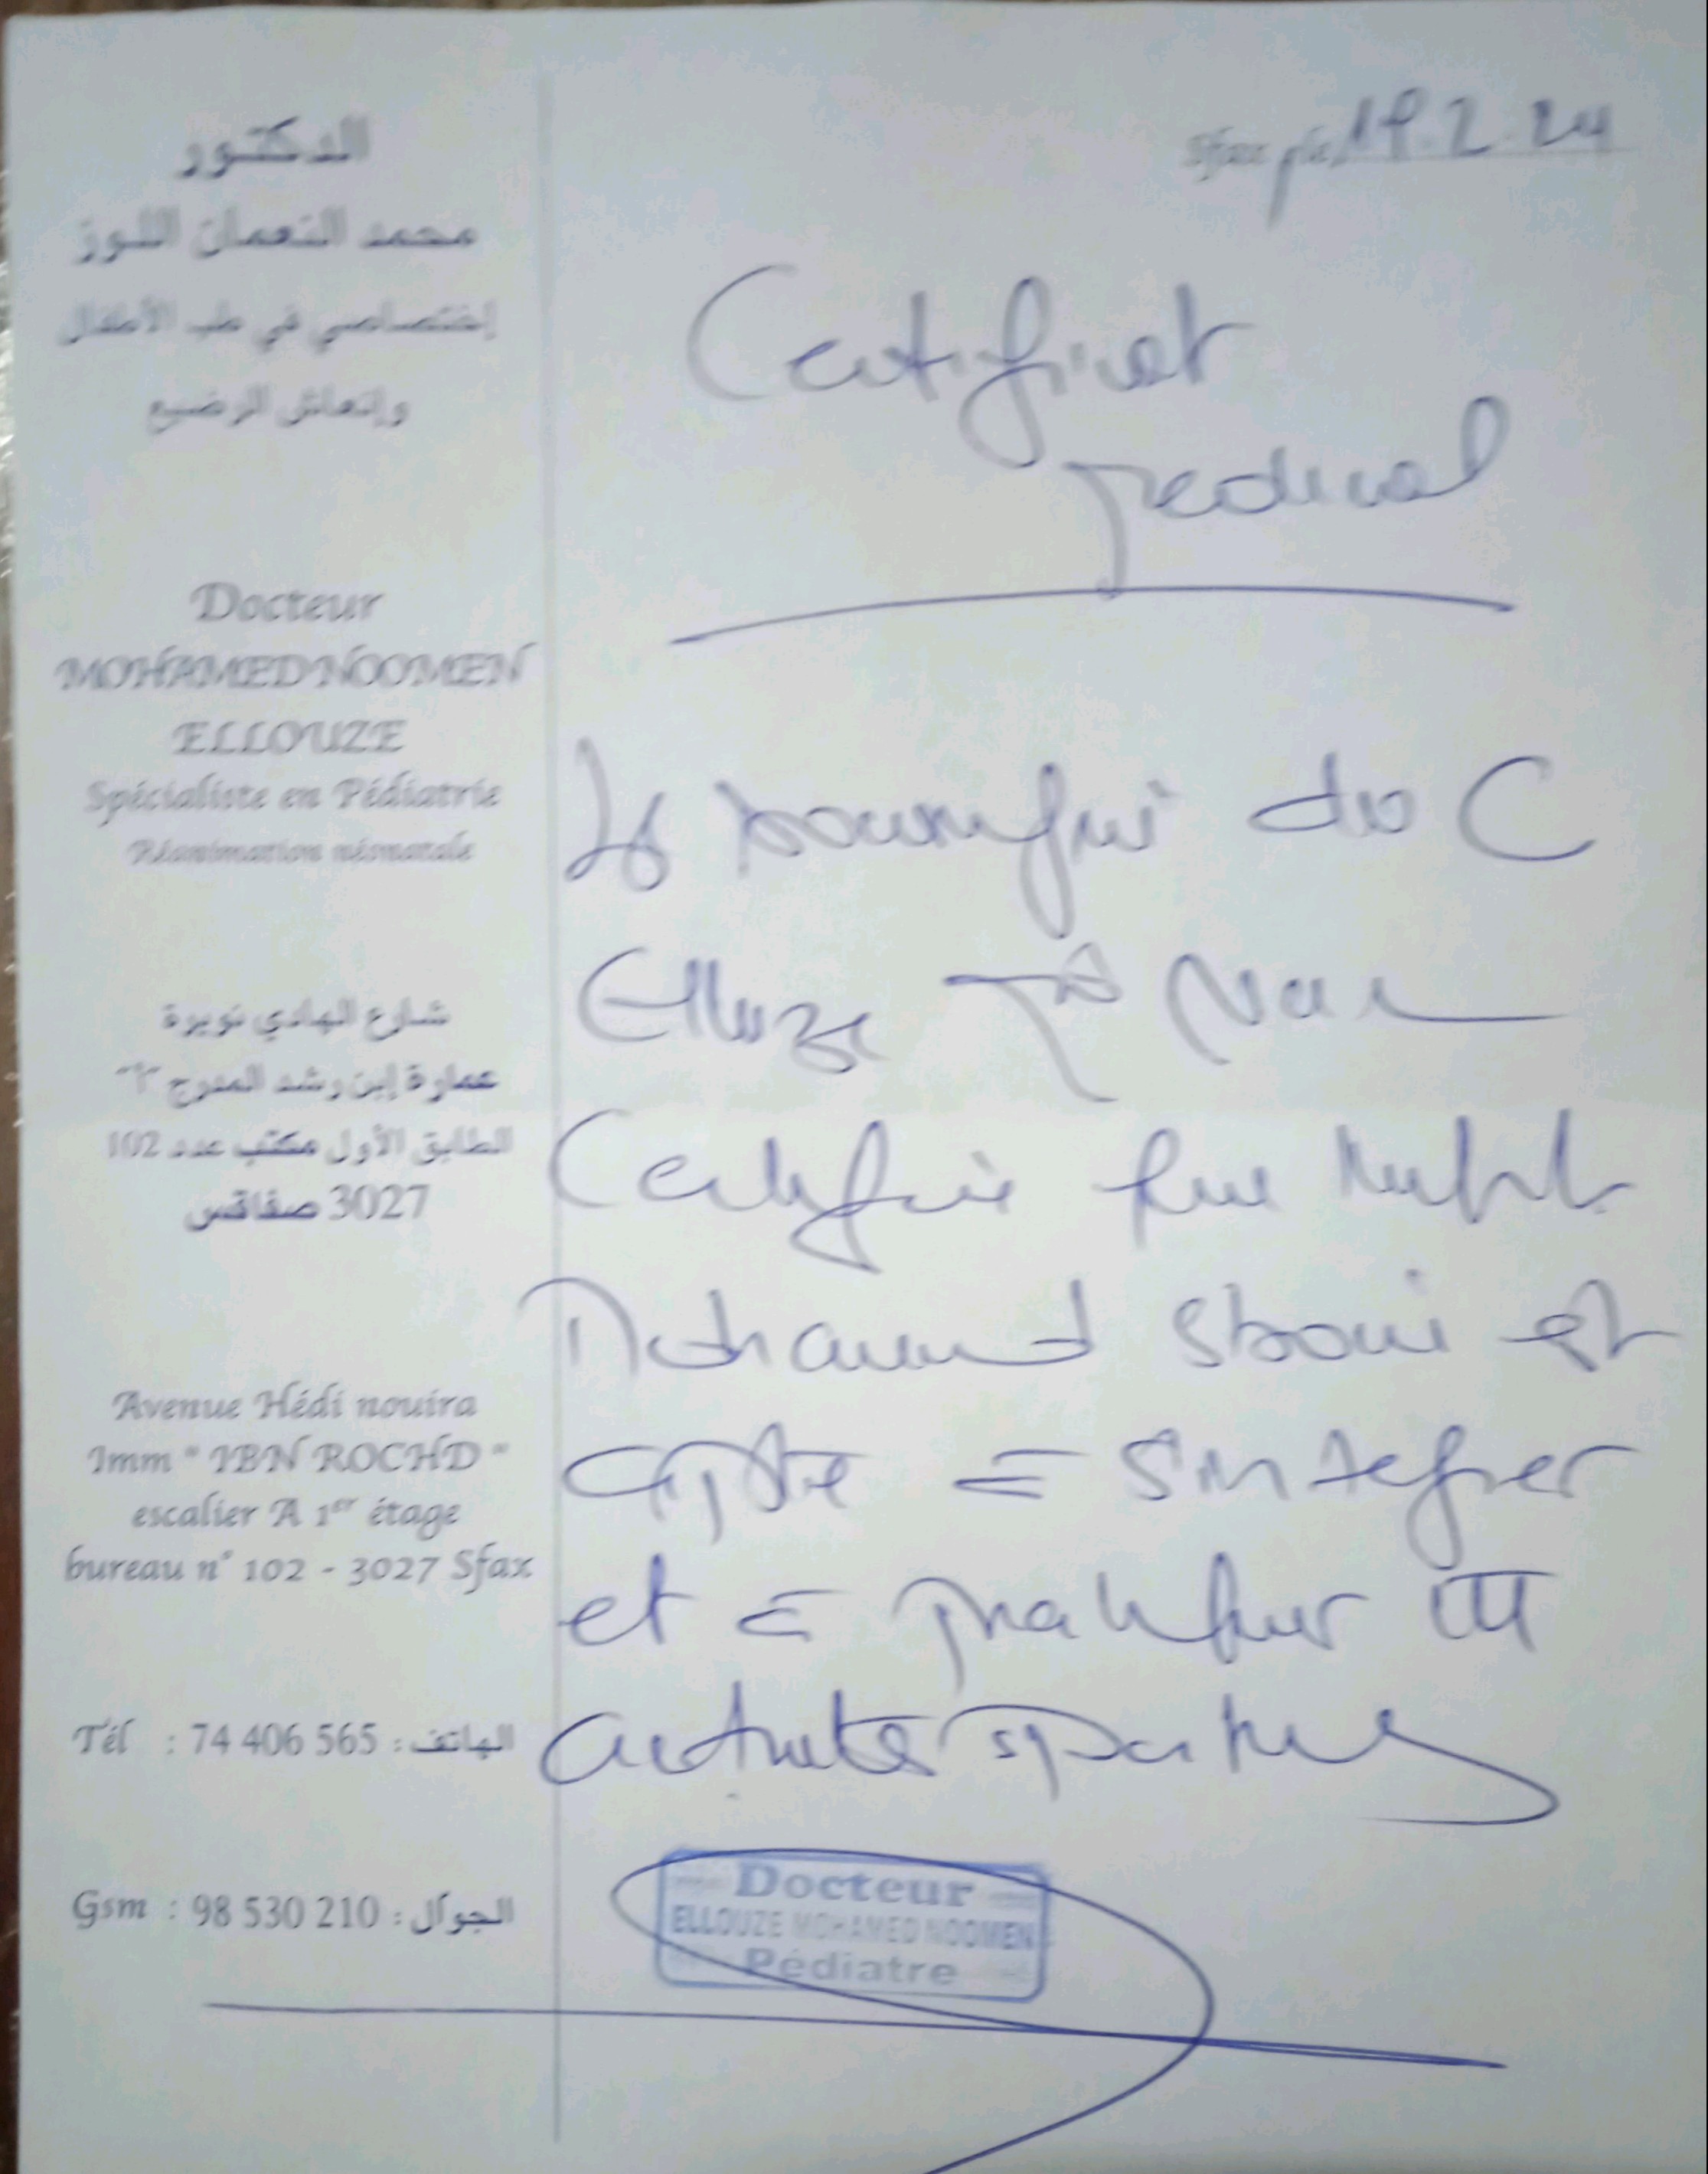 الدكتور
محمد النعمان اللوز
إختصاصي في طب الأطفال
وإنعاش الرضيع
Docteur
MOHAMED NOOMEN
ELLOUZE
Spécialiste en Pédiatrie
Réanimation néonatale
شارع الهادي نويرة
عمارة إبن رشد المدرج "أ"
الطابق الأول مكتب عدد 102
3027 صفاقس
Avenue Hédi nouira
Imm " IBN ROCHD "
escalier A 1er étage
bureau n° 102 - 3027 Sfax
Tél : 74 406 565 : الهاتف
Gsm : 98 530 210 : الجوال
Sfax, le 19.2.24
Certificat
medical
Je soussigné
Ellouze
Certifie que
Mohamed Sboui est
apte à s'integrer
et à pratiquer
activités sportives
Docteur
ELLOUZE MOHAMED NOOMEN
Pédiatre